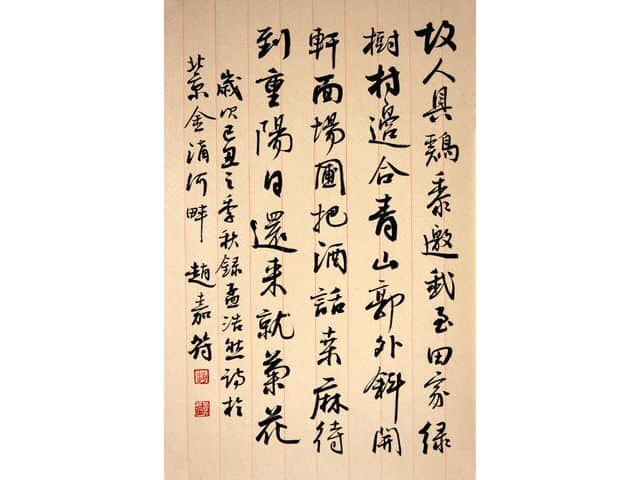 故人具鷄黍邀我至田家緑
樹村邊合青山郭外斜開
軒面場圃把酒話桑麻待
到重陽日還来就菊花
歲次己丑之季秋録孟浩然詩於
北京金溝河畔 趙嘉符